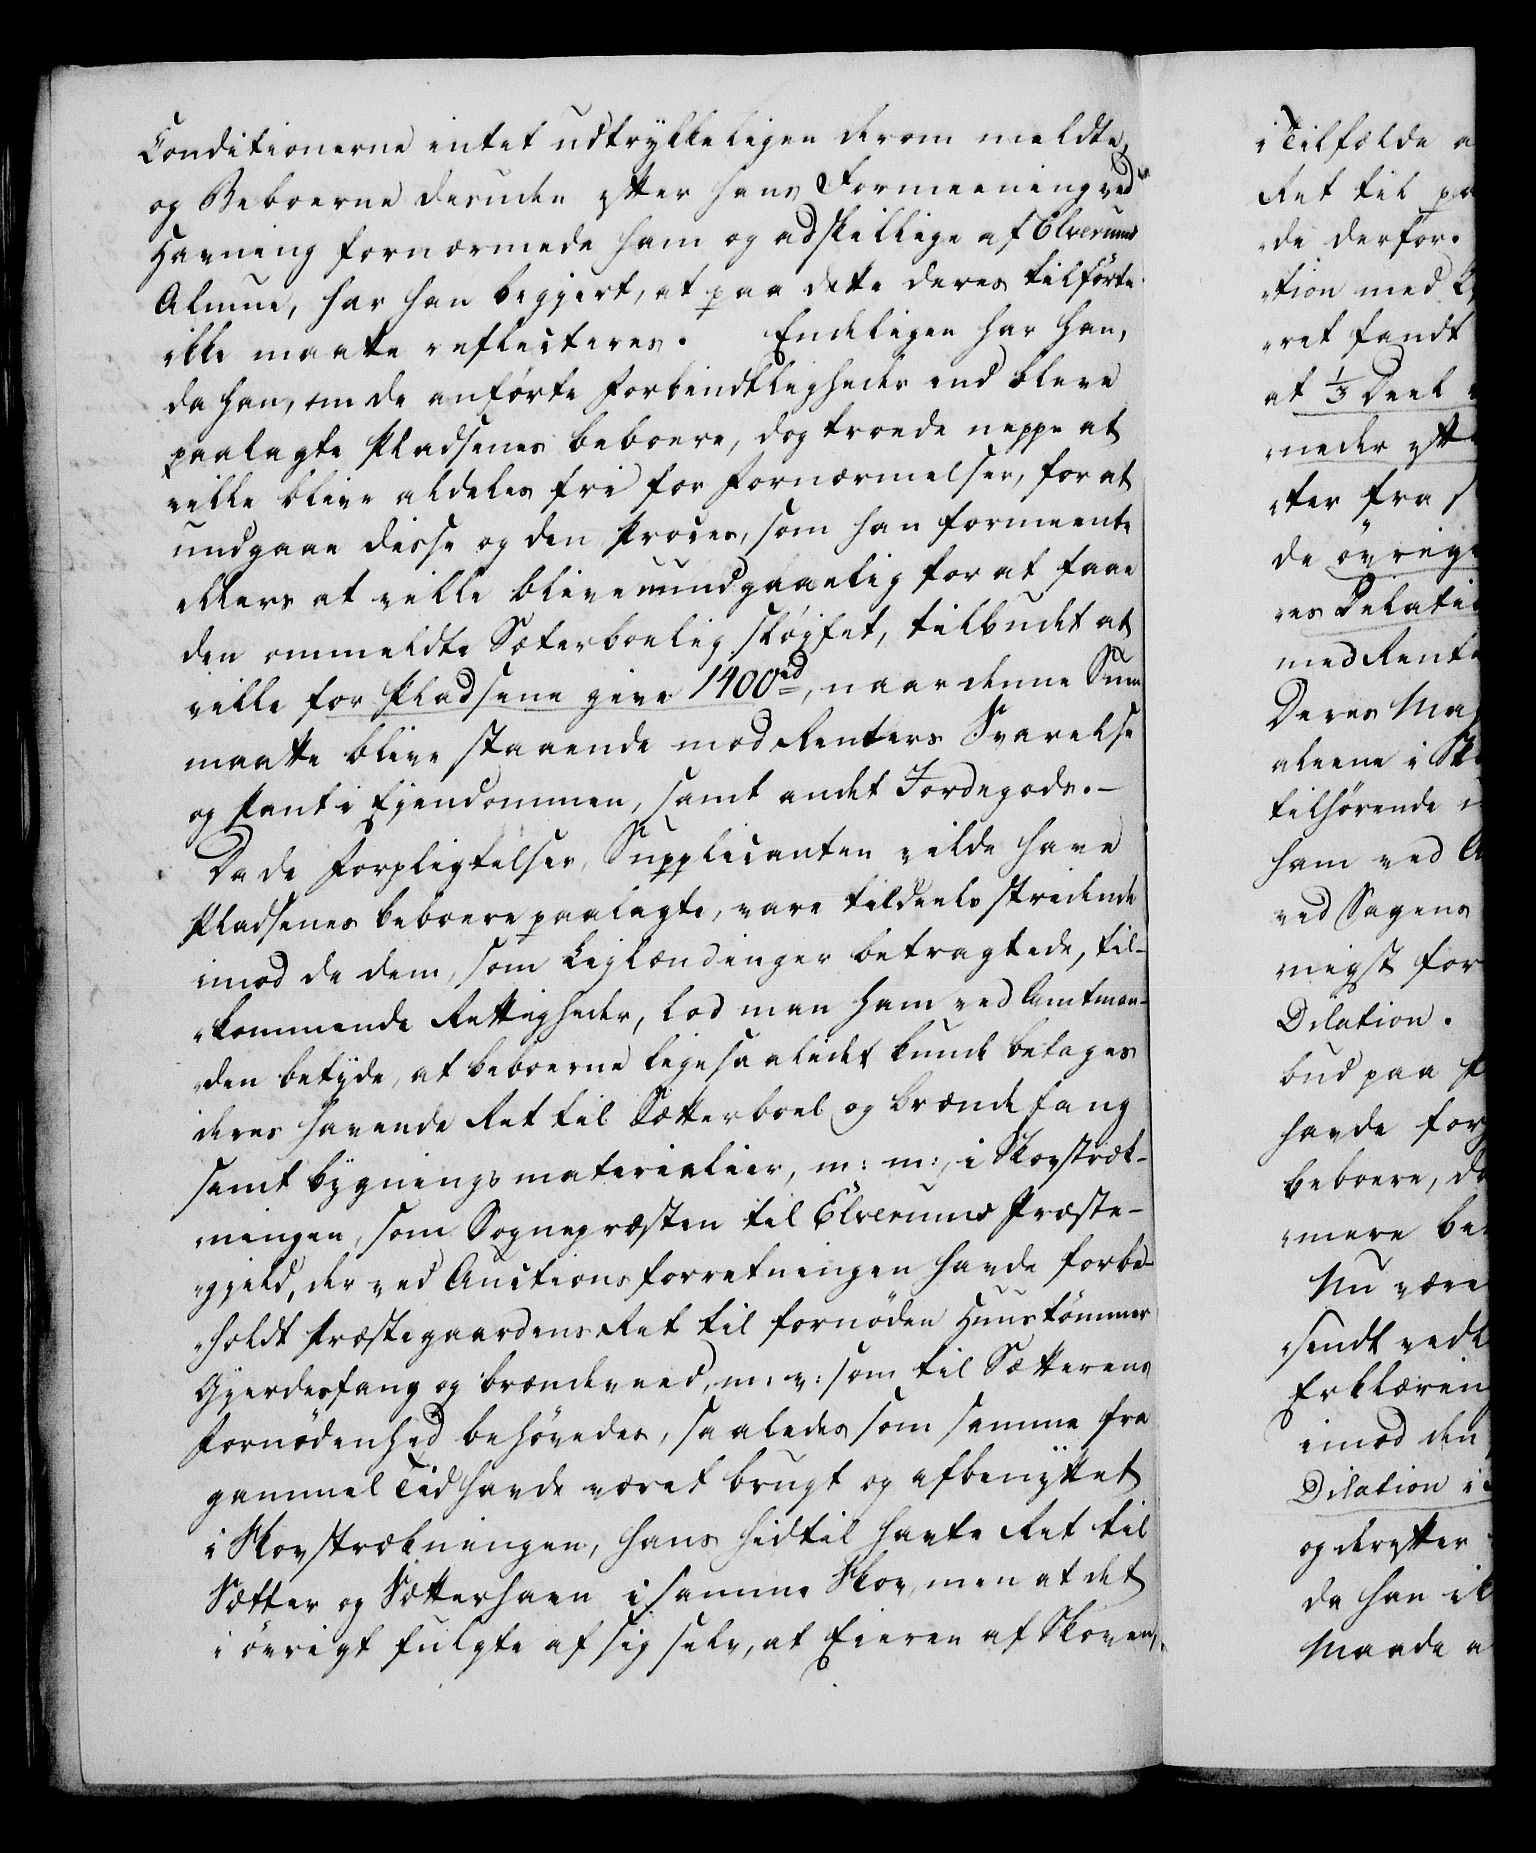 Conditionerne intet udtrykkeligen derom meldte,
og Beboerne desuden efter hans Formeening ved
Havning fornærmede ham og adskillige af Elverums
Almue, har han begjert, at paa dette deres tilførte
ikke maatte reflecteres. Endeligen har han,
da han, om de anførte Forbindtligheder end bleve
paalagte Pladsenes Beboere, dog troede neppe at
ville blive aldeles fri for Fornærmelser, for at
undgaae disse og den Proces, som han formeente
ellers at ville blive uundgaaelig for at faae
den ommeldte Sæterboelig sløifet, tilbudet at
ville for Pladsene give 1400rd, naar denne Sum
maatte blive staaende mod Renters Svarelse
og Pant i Ejendommen, samt andet Jordegods.-
Da de Forpligtelser, Supplicanten vilde have
Pladsenes Beboere paalagte, vare tildeels stridende
imod de dem, som Leylændinger betragtede, til-
kommende Rettigheder, lod man ham ved Amtman-
den betyde, at Beboerne ligesaalidet kunde betages
deres havende Ret til Sætterboel og Brændefang
samt Bygningsmaterialier, m: m:, i Skovstræk-
ningen, som Sognepræsten til Elverums Præste-
gjeld, der ved Auctionsforretningen havde forbe-
holdt Præstegaardens Ret til fornøden Huustømmer
Gjerdesfang og Brændeveed, m: v: som til Sætterens
Fornødenhed behøvedes, saaledes som samme fra
gammel Tid havde været brugt og afbenyttet
i Skovstrækningen, hans hidtil havte Ret til
Sætter og Sætterhavn i samme Skov, men at det
i øvrigt fulgte af sig selv, at Eieren af Skoven,
i Tilfælde a
Ret til pa
de derfor.
tion med
ret fandt
at 1/3 Deel
neder ef
ter fra
de øvrige
es Dilatio
med Rente
Deres Maj
aleene i Sk
tilhørende
ham ved A
ved Sagens
nigst for
Dilation.
bud paa P
havde for
Beboere, da
mere be
Nu være
sendt vedk
Erklæring
imod den
Dilation i
og derefter
da han ik
Maade a